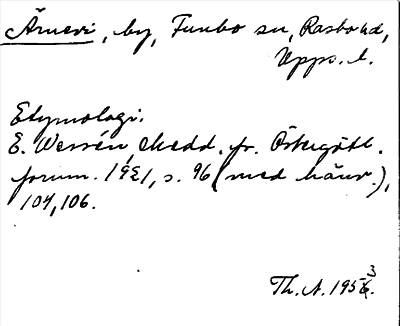 Ärnevi, by, Funbo sn, Rasbo hd,
Upps. l.
Etymologi.
E. Wessén, Medd. fr. Östergötl.
fornm. 1921, s. 96 (med hänv.),
104, 106.
Th. A. 1953